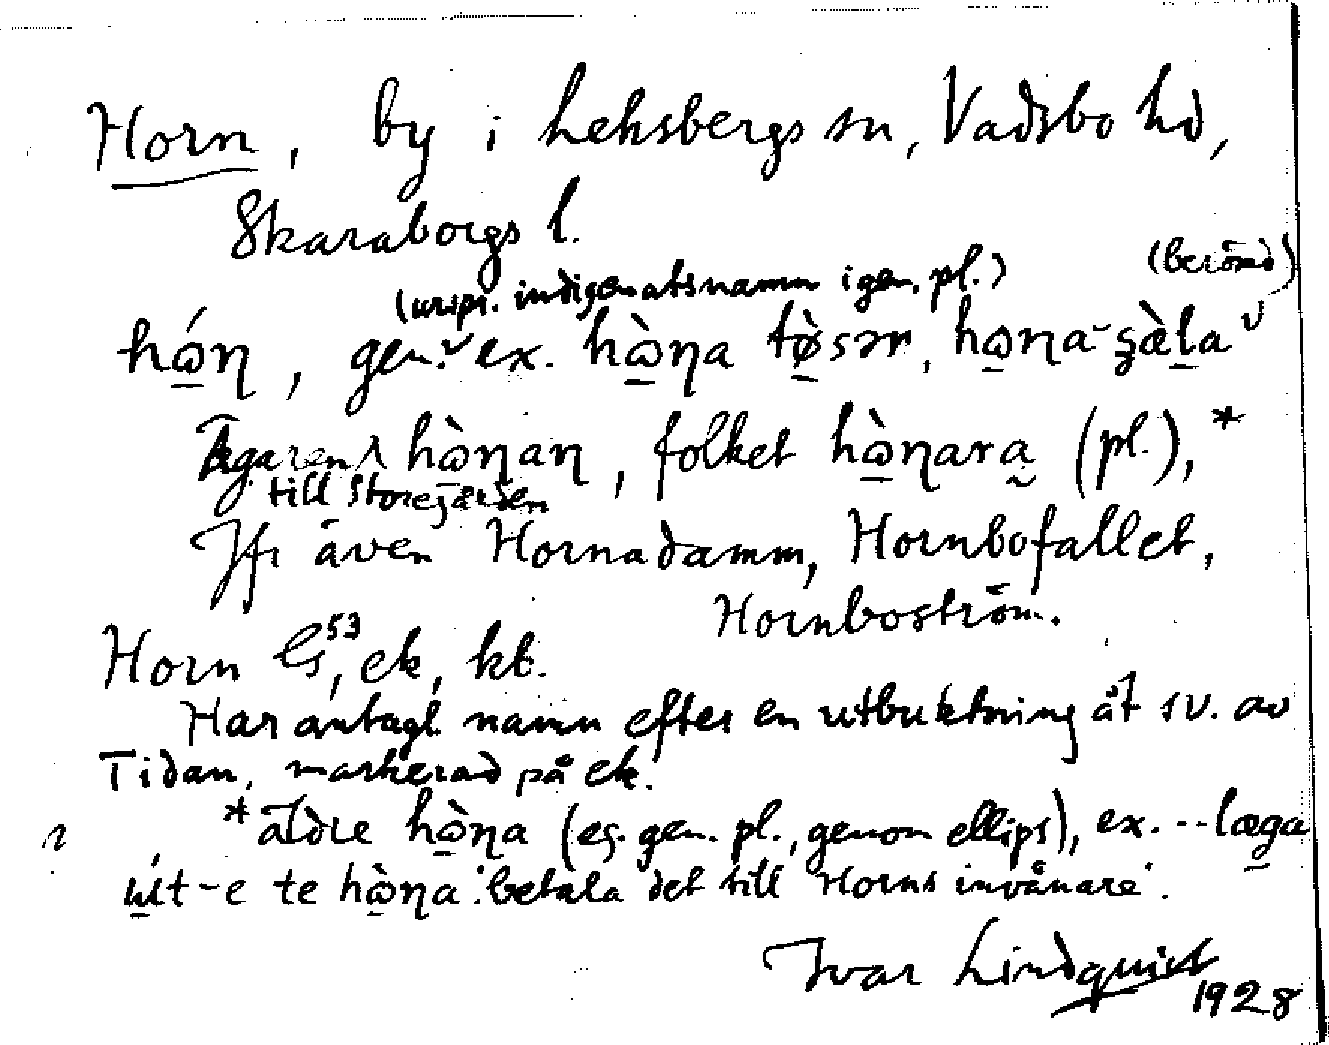 Horn, by i Leksbergs sn, Vadsbo hd,
Skaraborgs l.
(urspr. indigenatsnamn i gen. pl.) (berömd)
hώ̲ɳ, gen. ex. hὼ̲ɳa tø̲̀sər, hω̲ɳa-sæ̀l̲a
Ägaren hὼ̲ɳaɳ, folket hὼ̲ɳara (pl.),*
till Storegården
Jfr även Hornadamm, Hornbofallet,
Hornboström.
Horn G 53, ek, kb.
Har antagl. namn efter en utbuktning åt sv. av
Tidan, markerad på ek.
*äldre hὼ̲ɳa (eg. gen. pl., genom ellips), ex. -- læga
út-e te hὼ̲ɳa 'betala det till Horns invånare'.
Ivar Lindquist
1928